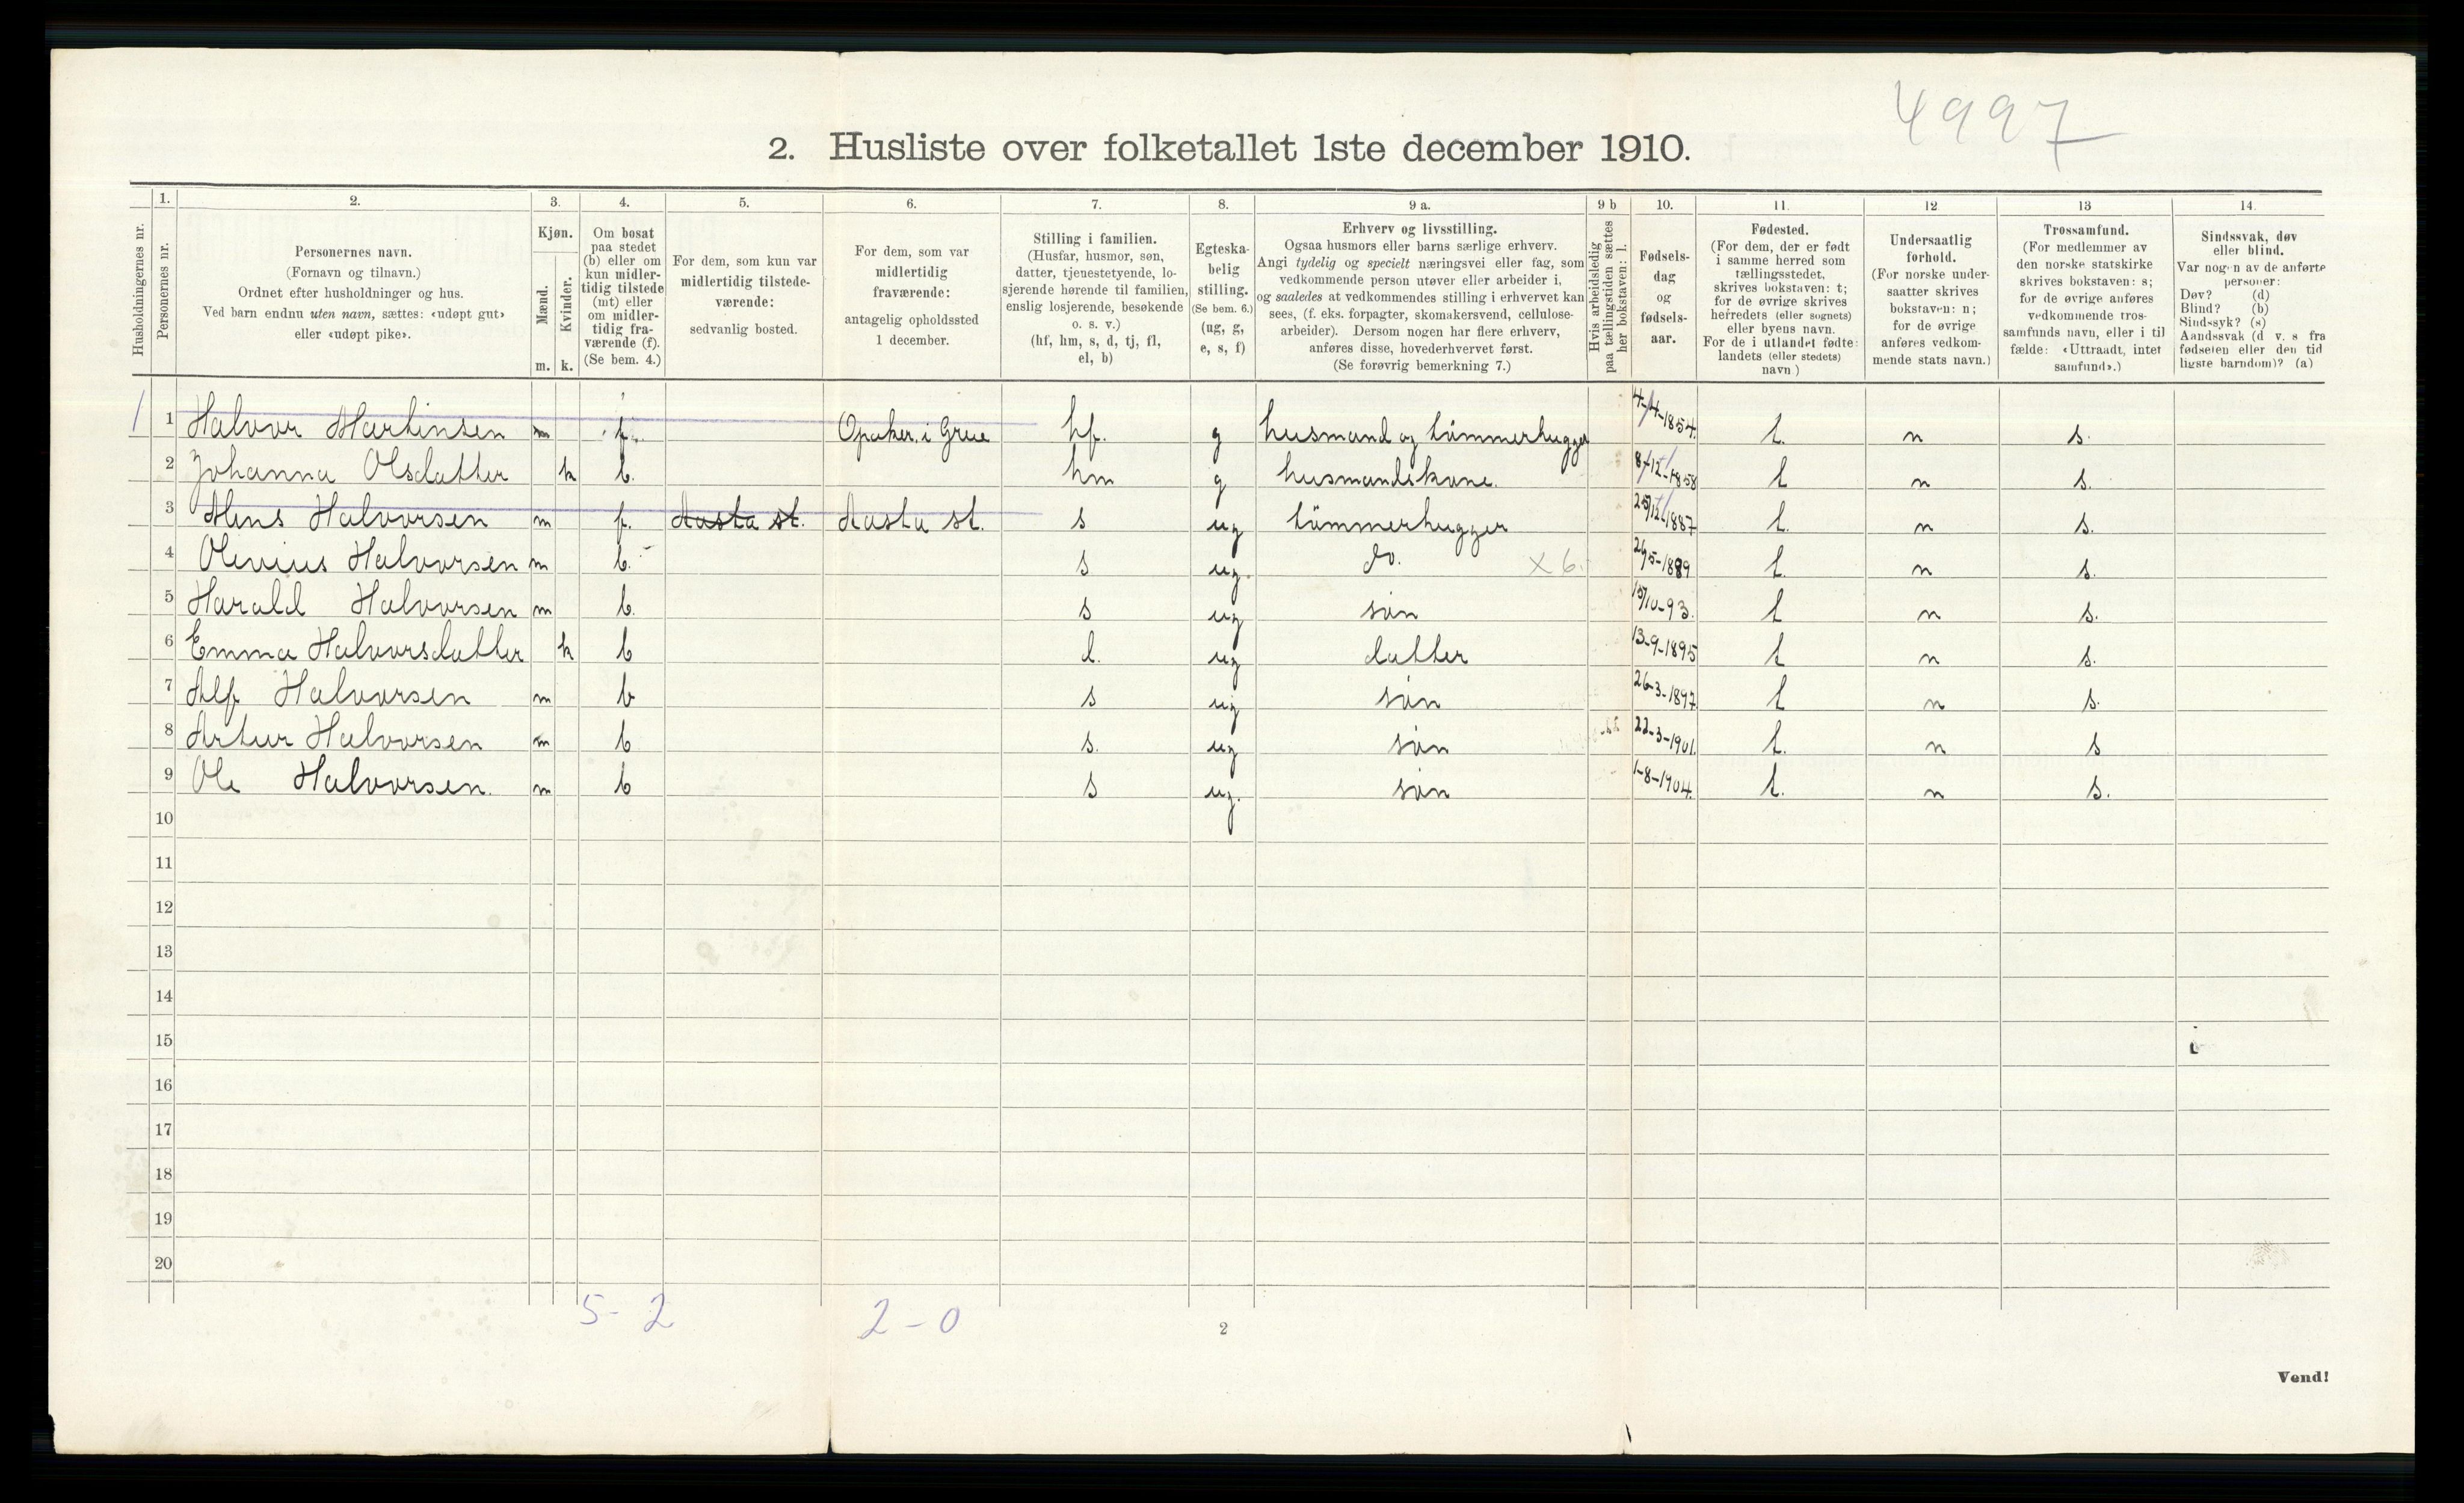 4997
2. Husliste over folketallet 1ste december 1910.
Husholdningernes nr.
1. Personernes nr.
2. Personernes navn. (Fornavn og tilnavn.) Ordnet efter husholdninger og hus. Ved barn endnu uten navn, sættes: «udøpt gut» eller «udøpt pike».
3. Kjøn. Mænd. m. Kvinder. k.
4. Om bosat paa stedet (b) eller om kun midlertidig tilstede (mt) eller om midlertidig fraværende (f). (Se bem. 4.)
5. For dem, som kun var midlertidig tilstedeværende: sedvanlig bosted.
6. For dem, som var midlertidig fraværende: antagelig opholdssted 1 december.
7. Stilling i familien. (Husfar, husmor, søn, datter, tjenestetyende, losjerende hørende til familien, enslig losjerende, besøkende o. s. v.) (hf, hm, s, d, tj, fl, el, b)
8. Egteskabelig stilling. (Se bem. 6.) (ug, g, e, s, f)
9 a. Erhverv og livsstilling. Ogsaa husmors eller barns særlige erhverv. Angi tydelig og specielt næringsvei eller fag, som vedkommende person utøver eller arbeider i, og saaledes at vedkommendes stilling i erhvervet kan sees, (f. eks. forpagter, skomakersvend, cellulosearbeider). Dersom nogen har flere erhverv, anføres disse, hovederhvervet først. (Se forøvrig bemerkning 7.)
9 b Hvis arbeidsledig paa tællingstiden sættes her bokstaven: l.
10. Fødselsdag og fødselsaar.
11. Fødested. (For dem, der er født i samme herred som tællingsstedet, skrives bokstaven: t; for de øvrige skrives herredets (eller sognets) eller byens navn. For de i utlandet fødte: landets (eller stedets) navn.)
12 Undersaatlig forhold. (For norske undersaatter skrives bokstaven: n; for de øvrige anføres vedkommende stats navn.)
13 Trossamfund. (For medlemmer av den norske statskirke skrives bokstaven: s; for de øvrige anføres vedkommende trossamfunds navn, eller i tilfælde: «Uttraadt, intet samfund».)
14. Sindssvak, døv eller blind. Var nogen av de anførte personer: Døv? (d) Blind? (b) Sindssyk? (s) Aandssvak (d v. s fra fødselen eller den tidligste barndom)? (a)
1 1 Halvor Martinsen m f. Opaker i Grue hf. g husmand og tømmerhugger 4-4-1854. t. n s.
2 Johanna Olsdatter k b. hm g husmandskone. 8/12-1858 t n s.
3 Mens Halvorsen m f. Aasta st. Aasta st. s ug tømmerhugger 25/12-1887 t. n s.
4 Olenius Halvorsen m b. s ug. do. x 6. 1889 t. n s.
5 Harald Halvorsen m b. s ug søn 15/10-93. t n s.
6 Emma Halvorsdatter k b d. ug datter 13-9-1895 t n s.
7 Alf Halvorsen m b s ug søn 26-3-1897 t n s.
8 Artur Halvorsen m b s. ug søn 22-3-1901. t. n s
9 Ole Halvorsen. m b s ug. søn 1-8-1904. t. n s.
10
11
12
13
14
15
16
17
18
19
20
5-2 2-0
2
Vend!